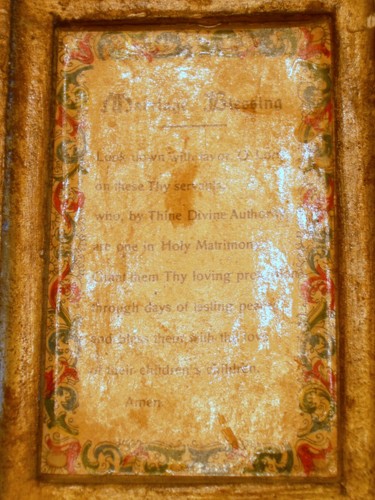 Marriage Blessing
Look down with favor, O Lord,
on these Thy servants,
who, by Thine Divine Authority,
are one in Holy Matrimony.
Grant them Thy loving protection
through days of lasting peace
and bless them with the love
of their children's children.
Amen